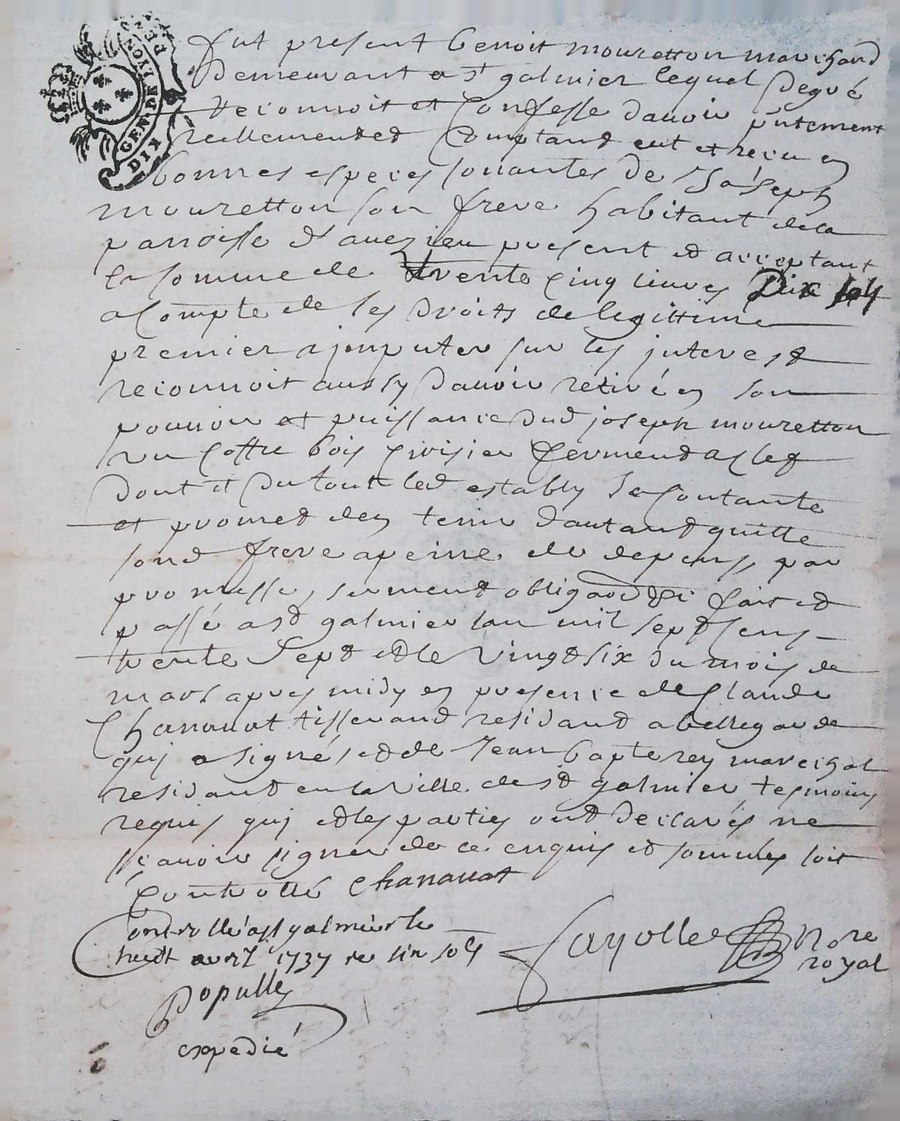 GEN DE LYON
DIX
DE
fut present benoit mouretton marchand
Demeurant a st galmier lequel Degré
Reconnoit et Confesse davoir purement
reellement et Comptand eut et recu en
bonnes especes sonantes de Joseph
mouretton son frere habitant de la
parroisse d'auezieu present et acceptant
la somme de trente Cinq liures Dix sols
a Compte de ses Droits de legittime
premier a jmputer sur les jnterest
reconnoit aussy Dauoir retiré en son
pouuoir et puissance dud joseph mouretton
un Coffre bois fermend a clef
Dont et Du tout led estably se Contante
et promet den tenir d'autand quitte
sond frere a peine de depens par
promesse, serment obligaon fait et
passé a st galmier lan mil sept sens
trente Sept et le Vingt six du mois de
mars apres midy en presence de Claude
Chanauat tisserand residant a bellegarde
quj a signé et de Jean bapte rey marechal
residant en la ville de st galmier tesmoins
requis quj et les parties ont declarés ne
scauoir signer de ce enquis et sommés soit
Controllé Chanauat
Controllé a st galmier le
huit avril 1737 re sols
Fayolle Nore
royal
Populle
expedié